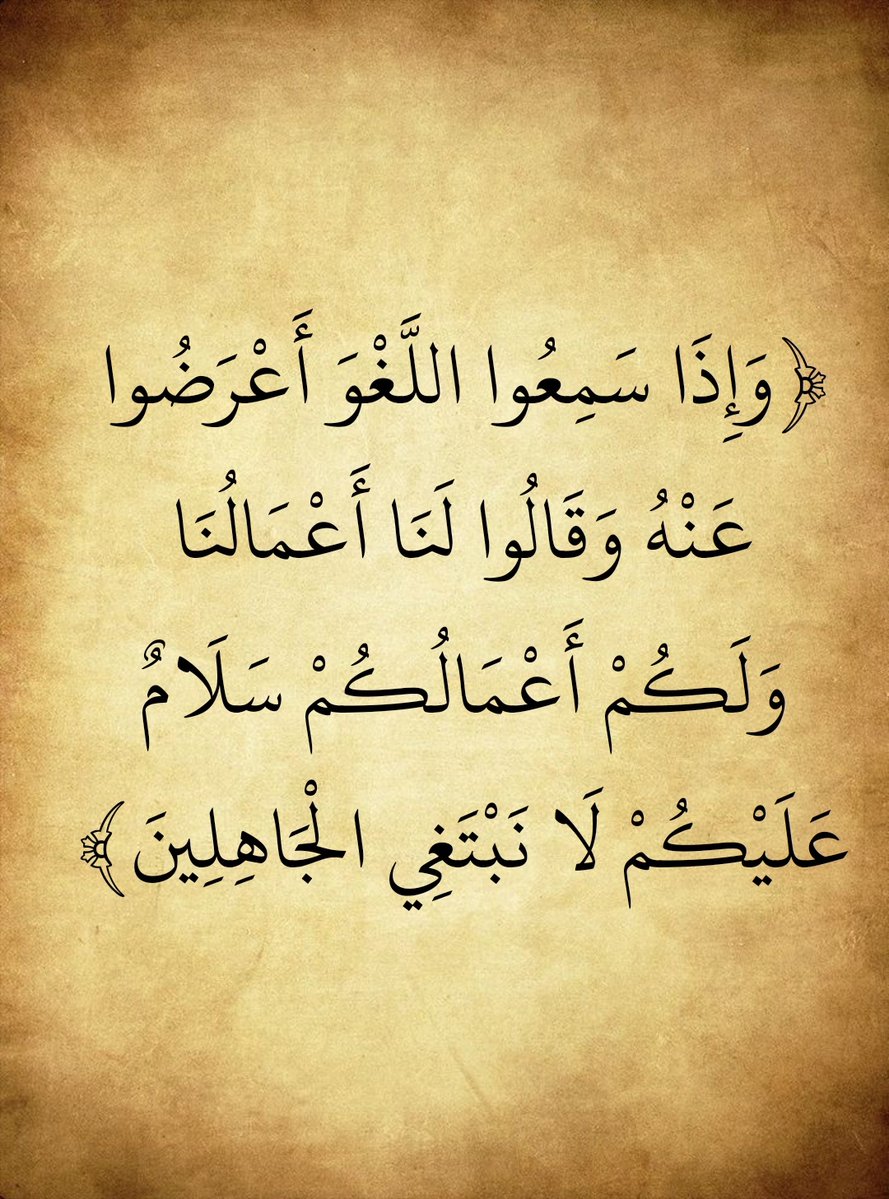 ﴿ وَإِذَا سَمِعُوا اللَّغْوَ أَعْرَضُوا
عَنْهُ وَقَالُوا لَنَا أَعْمَالُنَا
وَلَكُمْ أَعْمَالُكُمْ سَلَامٌ
عَلَيْكُمْ لَا نَبْتَغِي الْجَاهِلِينَ ﴾